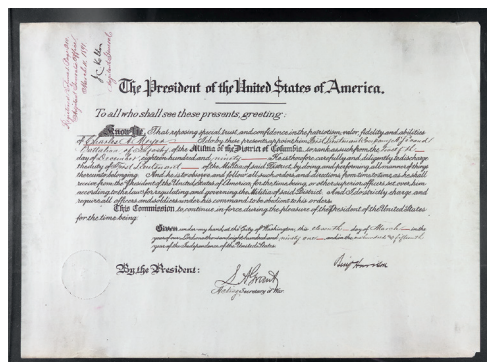 The President of the United States of America.
To all who shall see these presents, greeting:
Know Ye, That reposing special trust and confidence in the patriotism, valor, fidelity and abilities
of Charles C. I do by these presents appoint him First Lieutenant, Company
Battalion of Infantry of the Militia of the District of Columbia, to rank as such from the
day of December eighteen hundred and ninety He is therefore carefully and diligently to discharge
the duty of First Lieutenant of the Militia of said District, by doing and performing all manner of things
thereunto belonging. And he is to observe and follow all such orders and directions from time to time, as he shall
receive from the President of the United States of America, for the time being, or other superior officers set over him,
according to the laws for regulating and governing the Militia of said District. And I do strictly charge and
require all officers and soldiers under his command to be obedient to his orders.
This Commission to continue in force during the pleasure of the President of the United States
for the time being.
Given under my hand, at the City of Washington, this day of March in the
year of our Lord one thousand eight hundred and ninety one and in the one hundred & fifteenth
year of the Independence of the United States.
By the President:
Benj Harrison
Acting Secretary of War.